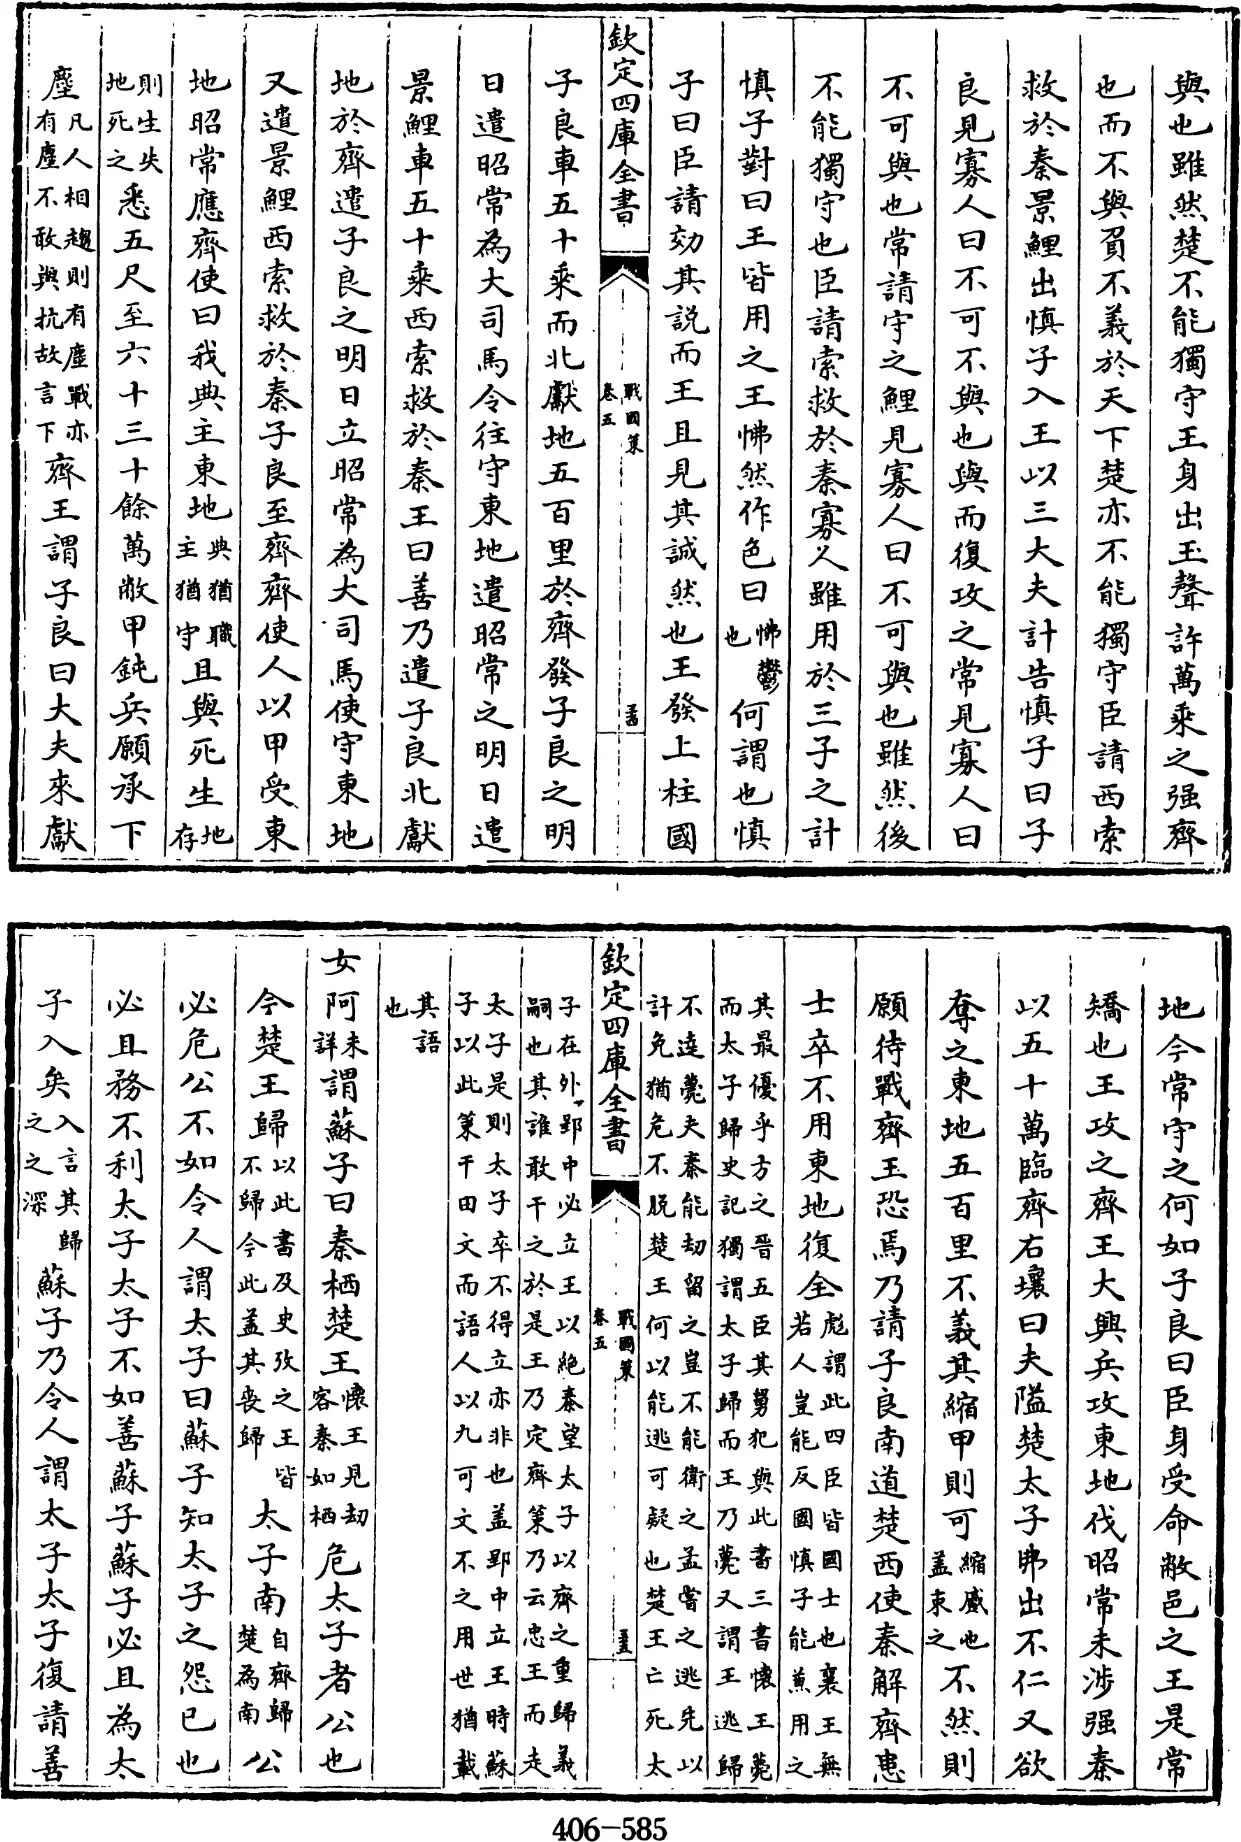 與也雖然楚不能獨守王身出玉聲許萬乘之强齊
也而不與負不義於天下楚亦不能獨守臣請西索
救於秦景鯉出慎子入王以三大夫計告慎子曰子
良見寡人曰不可不與也與而復攻之常見寡人曰
不可與也常請守之鯉見寡人曰不可與也雖然後
不能獨守也臣請索救於秦寡人雖用於三子之計
慎子對曰王皆用之王怫然作色曰怫鬱也何謂也慎
子曰臣請効其説而王且見其誠然也王發上柱國
欽定四庫全書
戰國策
卷五
子良車五十乘而北獻地五百里於齊發子良之明
日遣昭常為大司馬令往守東地遣昭常之明日遣
景鯉車五十乘西索救於秦王曰善乃遣子良北獻
地於齊遣子良之明日立昭常為大司馬使守東地
又遣景鯉西索救於秦子良至齊齊使人以甲受東
地昭常應齊使曰我典主東地典猶職主猶守且與死生地存
則生失地死之悉五尺至六十三十餘萬敝甲鈍兵願承下
塵凡人相趨則有塵戰亦有塵不敢與抗故言下齊王謂子良曰大夫來獻
地今常守之何如子良曰臣身受命敝邑之王是常
矯也王攻之齊王大興兵攻東地伐昭常未涉强秦
以五十萬臨齊右壤曰夫隘楚太子弗出不仁又欲
奪之東地五百里不義其縮甲則可縮蹙也蓋束之不然則
願待戰齊王恐焉乃請子良南道楚西使秦解齊患
士卒不用東地復全彪謂此四臣皆國士也襄王無若人豈能反國慎子能兼用之
其最優乎方之晉五臣其舅犯與此書三書懷王薨而太子歸史記獨謂太子歸而王乃薨又謂王逃歸
不達薨夫秦能劫留之豈不能衛之孟嘗之逃先以計免猶危不脱楚王何以能逃可疑也楚王亡死太
欽定四庫全書
戰國策
卷五
子在外郢中必立王以絶秦望太子以齊之重歸義嗣也其誰敢干之於是王乃定齊策乃云忠王而走
太子是則太子卒不得立亦非也蓋郢中立王時蘇子以此策干田文而語人以九可文不之用世猶載
其語也
女阿未詳謂蘇子曰秦栖楚王懷王見劫客秦如栖危太子者公也
今楚王歸以此書及史攷之王皆不歸今此蓋其喪歸太子南自齊歸楚為南公
必危公不如令人謂太子曰蘇子知太子之怨已也
必且務不利太子太子不如善蘇子蘇子必且為太
子入矣入言其歸之之深蘇子乃令人謂太子太子復請善
406-585